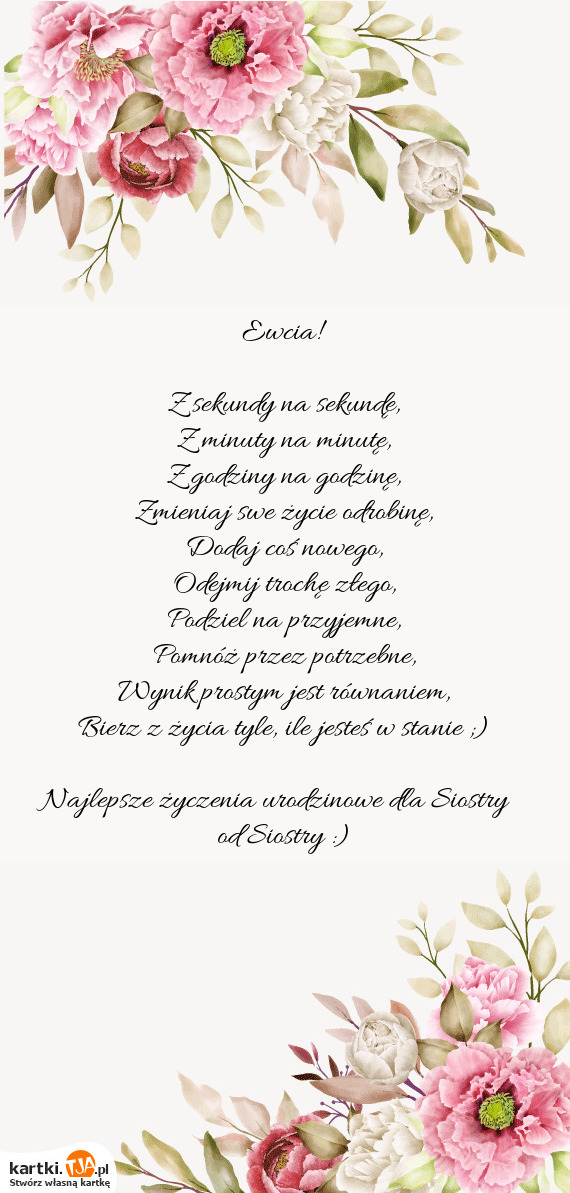 Ewcia!
Z sekundy na sekundę,
Z minuty na minutę,
Z godziny na godzinę,
Zmieniaj swe życie odrobinę,
Dodaj coś nowego,
Odejmij trochę złego,
Podziel na przyjemne,
Pomnóż przez potrzebne,
Wynik prostym jest równaniem,
Bierz z życia tyle, ile jesteś w stanie ;)
Najlepsze życzenia urodzinowe dla Siostry
od Siostry :)
kartki.TJA.pl
Stwórz własną kartkę